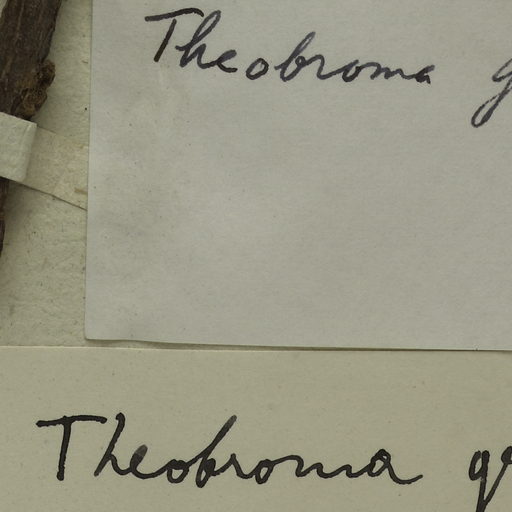 Theobroma g
Theobroma gr